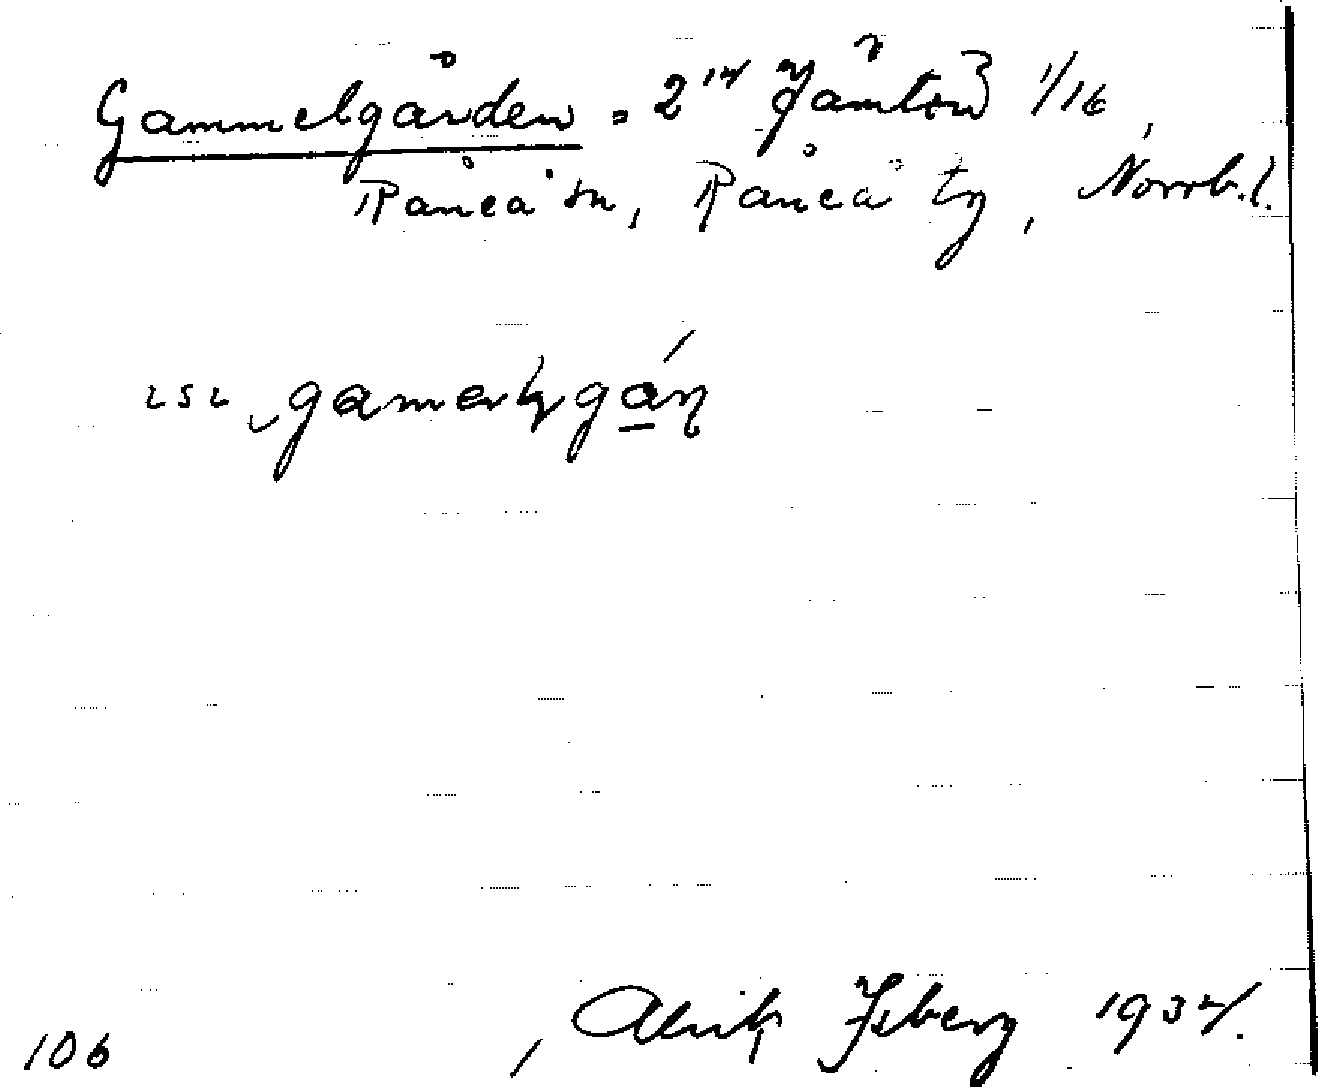 Gammelgården = 2 14 Jämtön 1/16,
Råneå sn, Råneå tg, Norrb. l.
252 gamerlgån
106 Alrik Isberg 1934.